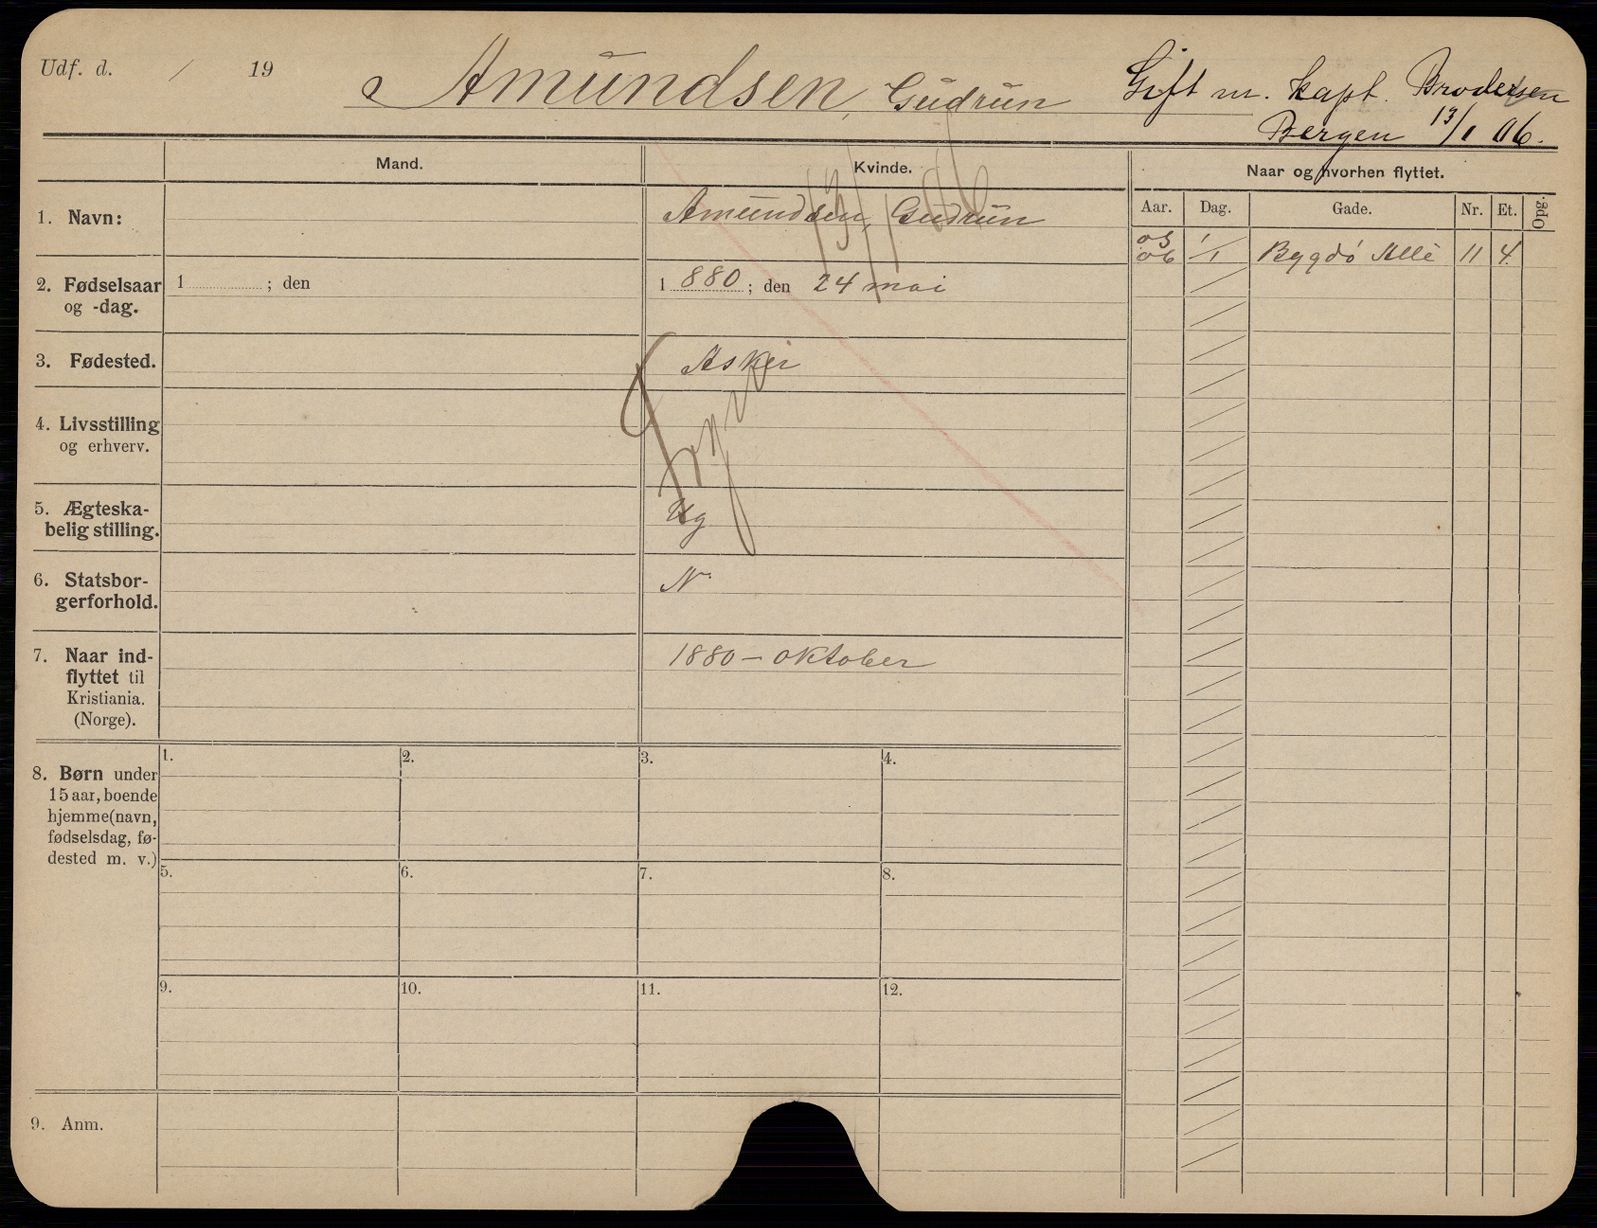 Udf. d. / 19
Amundsen, Gudrun
Gift m. kapt. Brodersen
Bergen 13/1 06.
Mand.
Kvinde.
Naar og hvorhen flyttet.
Aar. Dag. Gade. Nr. Et. Opg.
1. Navn:
Amundsen, Gudrun
13/1 06
05
06 1/1 Bygdö Allè 11 4
2. Fødselsaar
og -dag.
1 ; den
1 880 ; den 24 mai
3. Fødested.
Asker
4. Livsstilling
og erhverv.
5. Ægteska-
belig stilling.
Ug
6. Statsbor-
gerforhold.
N.
7. Naar ind-
flyttet til
Kristiania.
(Norge).
1880 - oktober
8. Børn under
15 aar, boende
hjemme (navn,
fødselsdag, fø-
dested m. v.)
1. 2. 3. 4.
5. 6. 7. 8.
9. 10. 11. 12.
9. Anm.